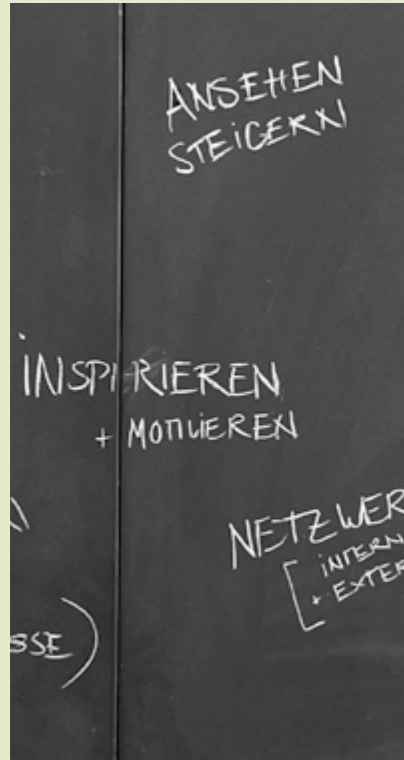 ANSEHEN
STEIGERN
INSPIRIEREN
+ MOTIVIEREN
NETZWER
[ INTERN
+ EXTER
SSE)